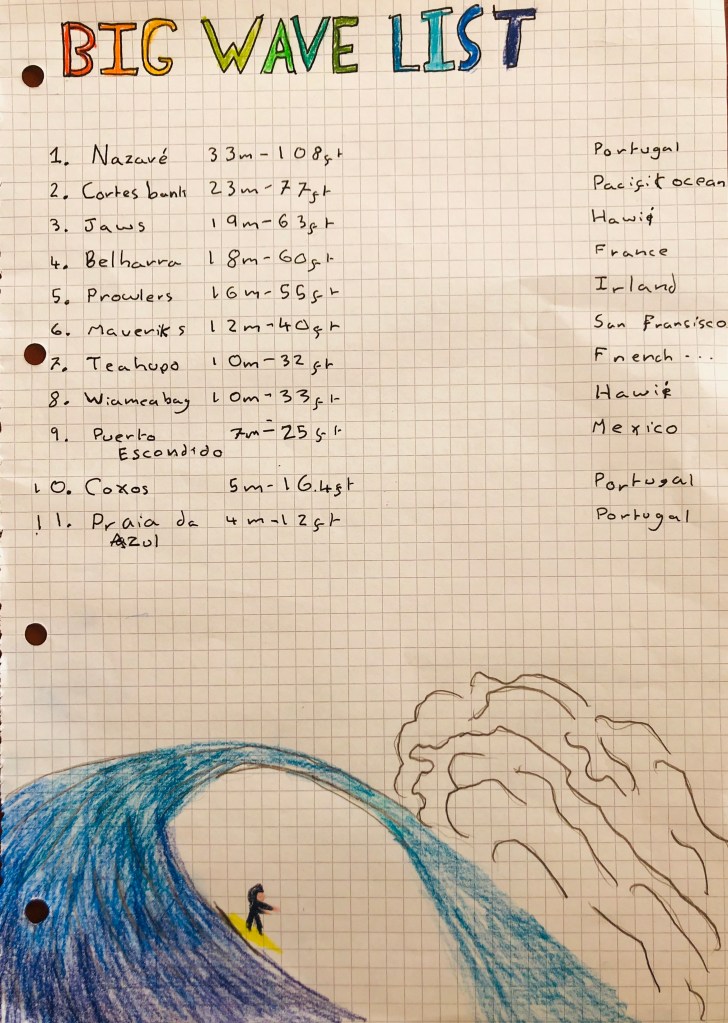 BIG WAVE LIST
1. Nazavé 33m-108ft Portugal
2. Cortes bank 23m-77ft Pacifik ocean
3. Jaws 19m-63ft Hawié
4. Belharra 18m-60ft France
5. Prowlers 16m-55ft Irland
6. Maveriks 12m-40ft San Fransisco
7. Teahupo 10m-32ft French ...
8. Wiameabay 10m-33ft Hawié
9. Puerto 7m-25ft Mexico
Escondido
10. Coxos 5m-16.4ft Portugal
11. Praia da 4m-12ft Portugal
Azul